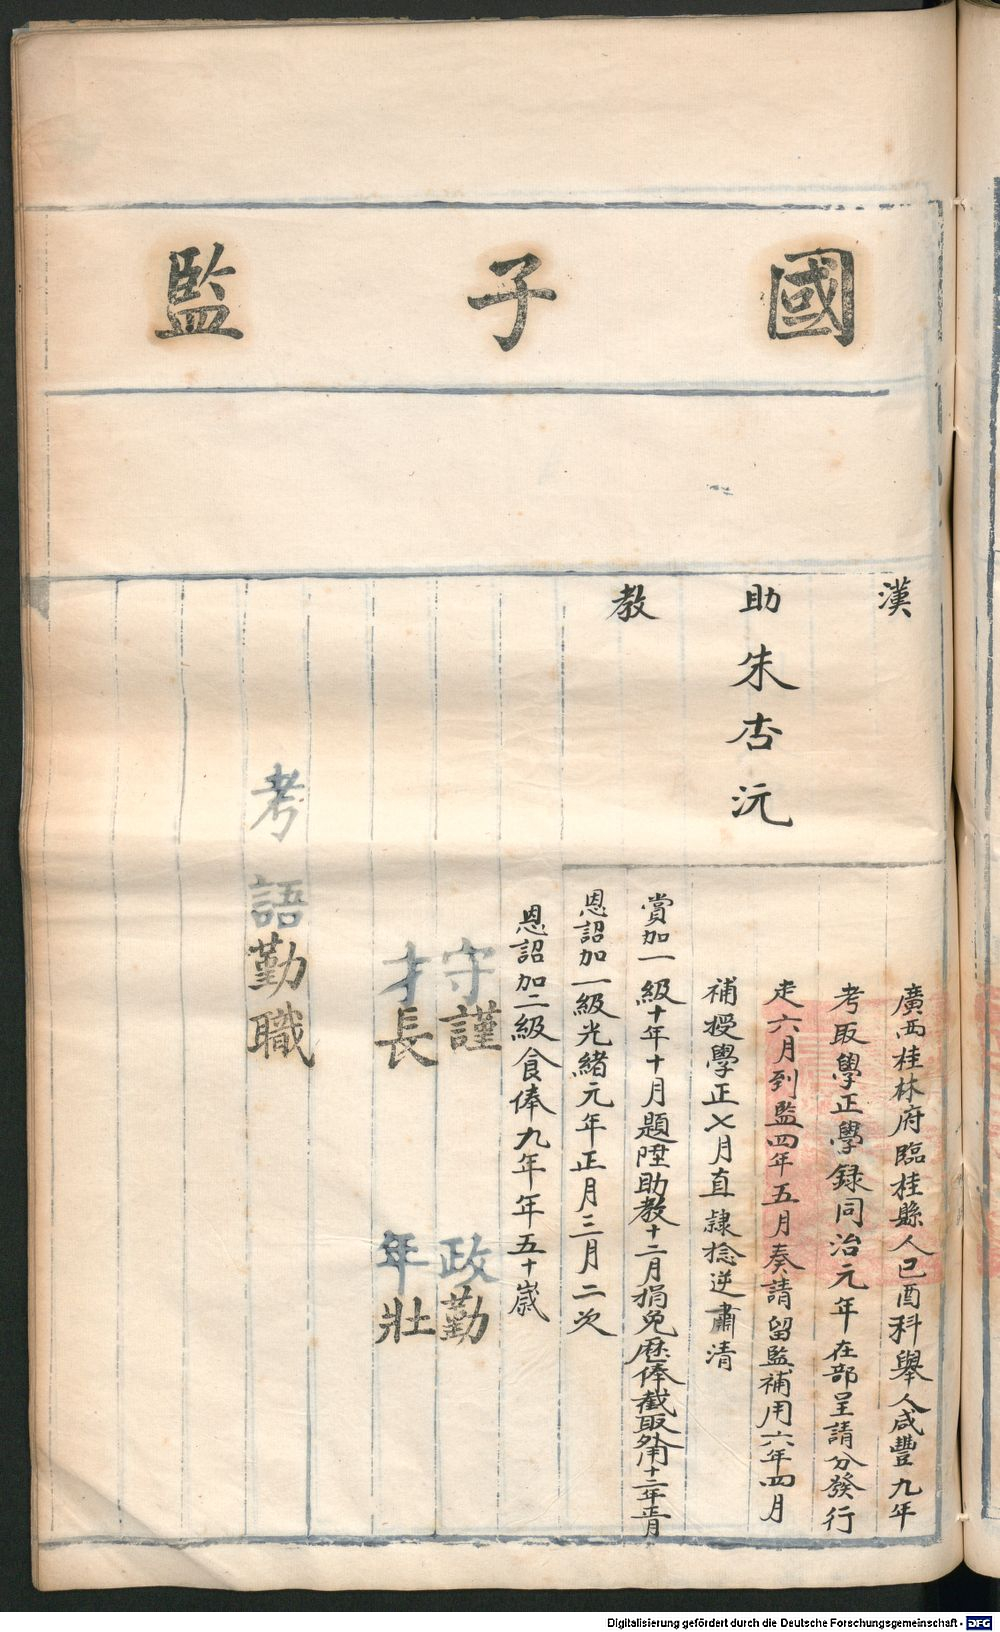 國子監
漢助教
朱杏沅
廣西桂林府臨桂縣人己酉科舉人咸豐九年
考取學正學録同治元年在部呈請分發行
走六月到監四年五月奏請留監補用六年四月
補授學正七月直隸捻逆肅清
賞加一級十年十月題陞助教十二月捐免歷俸截取外用十二年正月
恩詔加一級光緒元年正月三月二次
恩詔加二級食俸九年年五十歲
守謹 政勤
才長 年壯
考語勤職
Digitalisierung gefördert durch die Deutsche Forschungsgemeinschaft - DFG